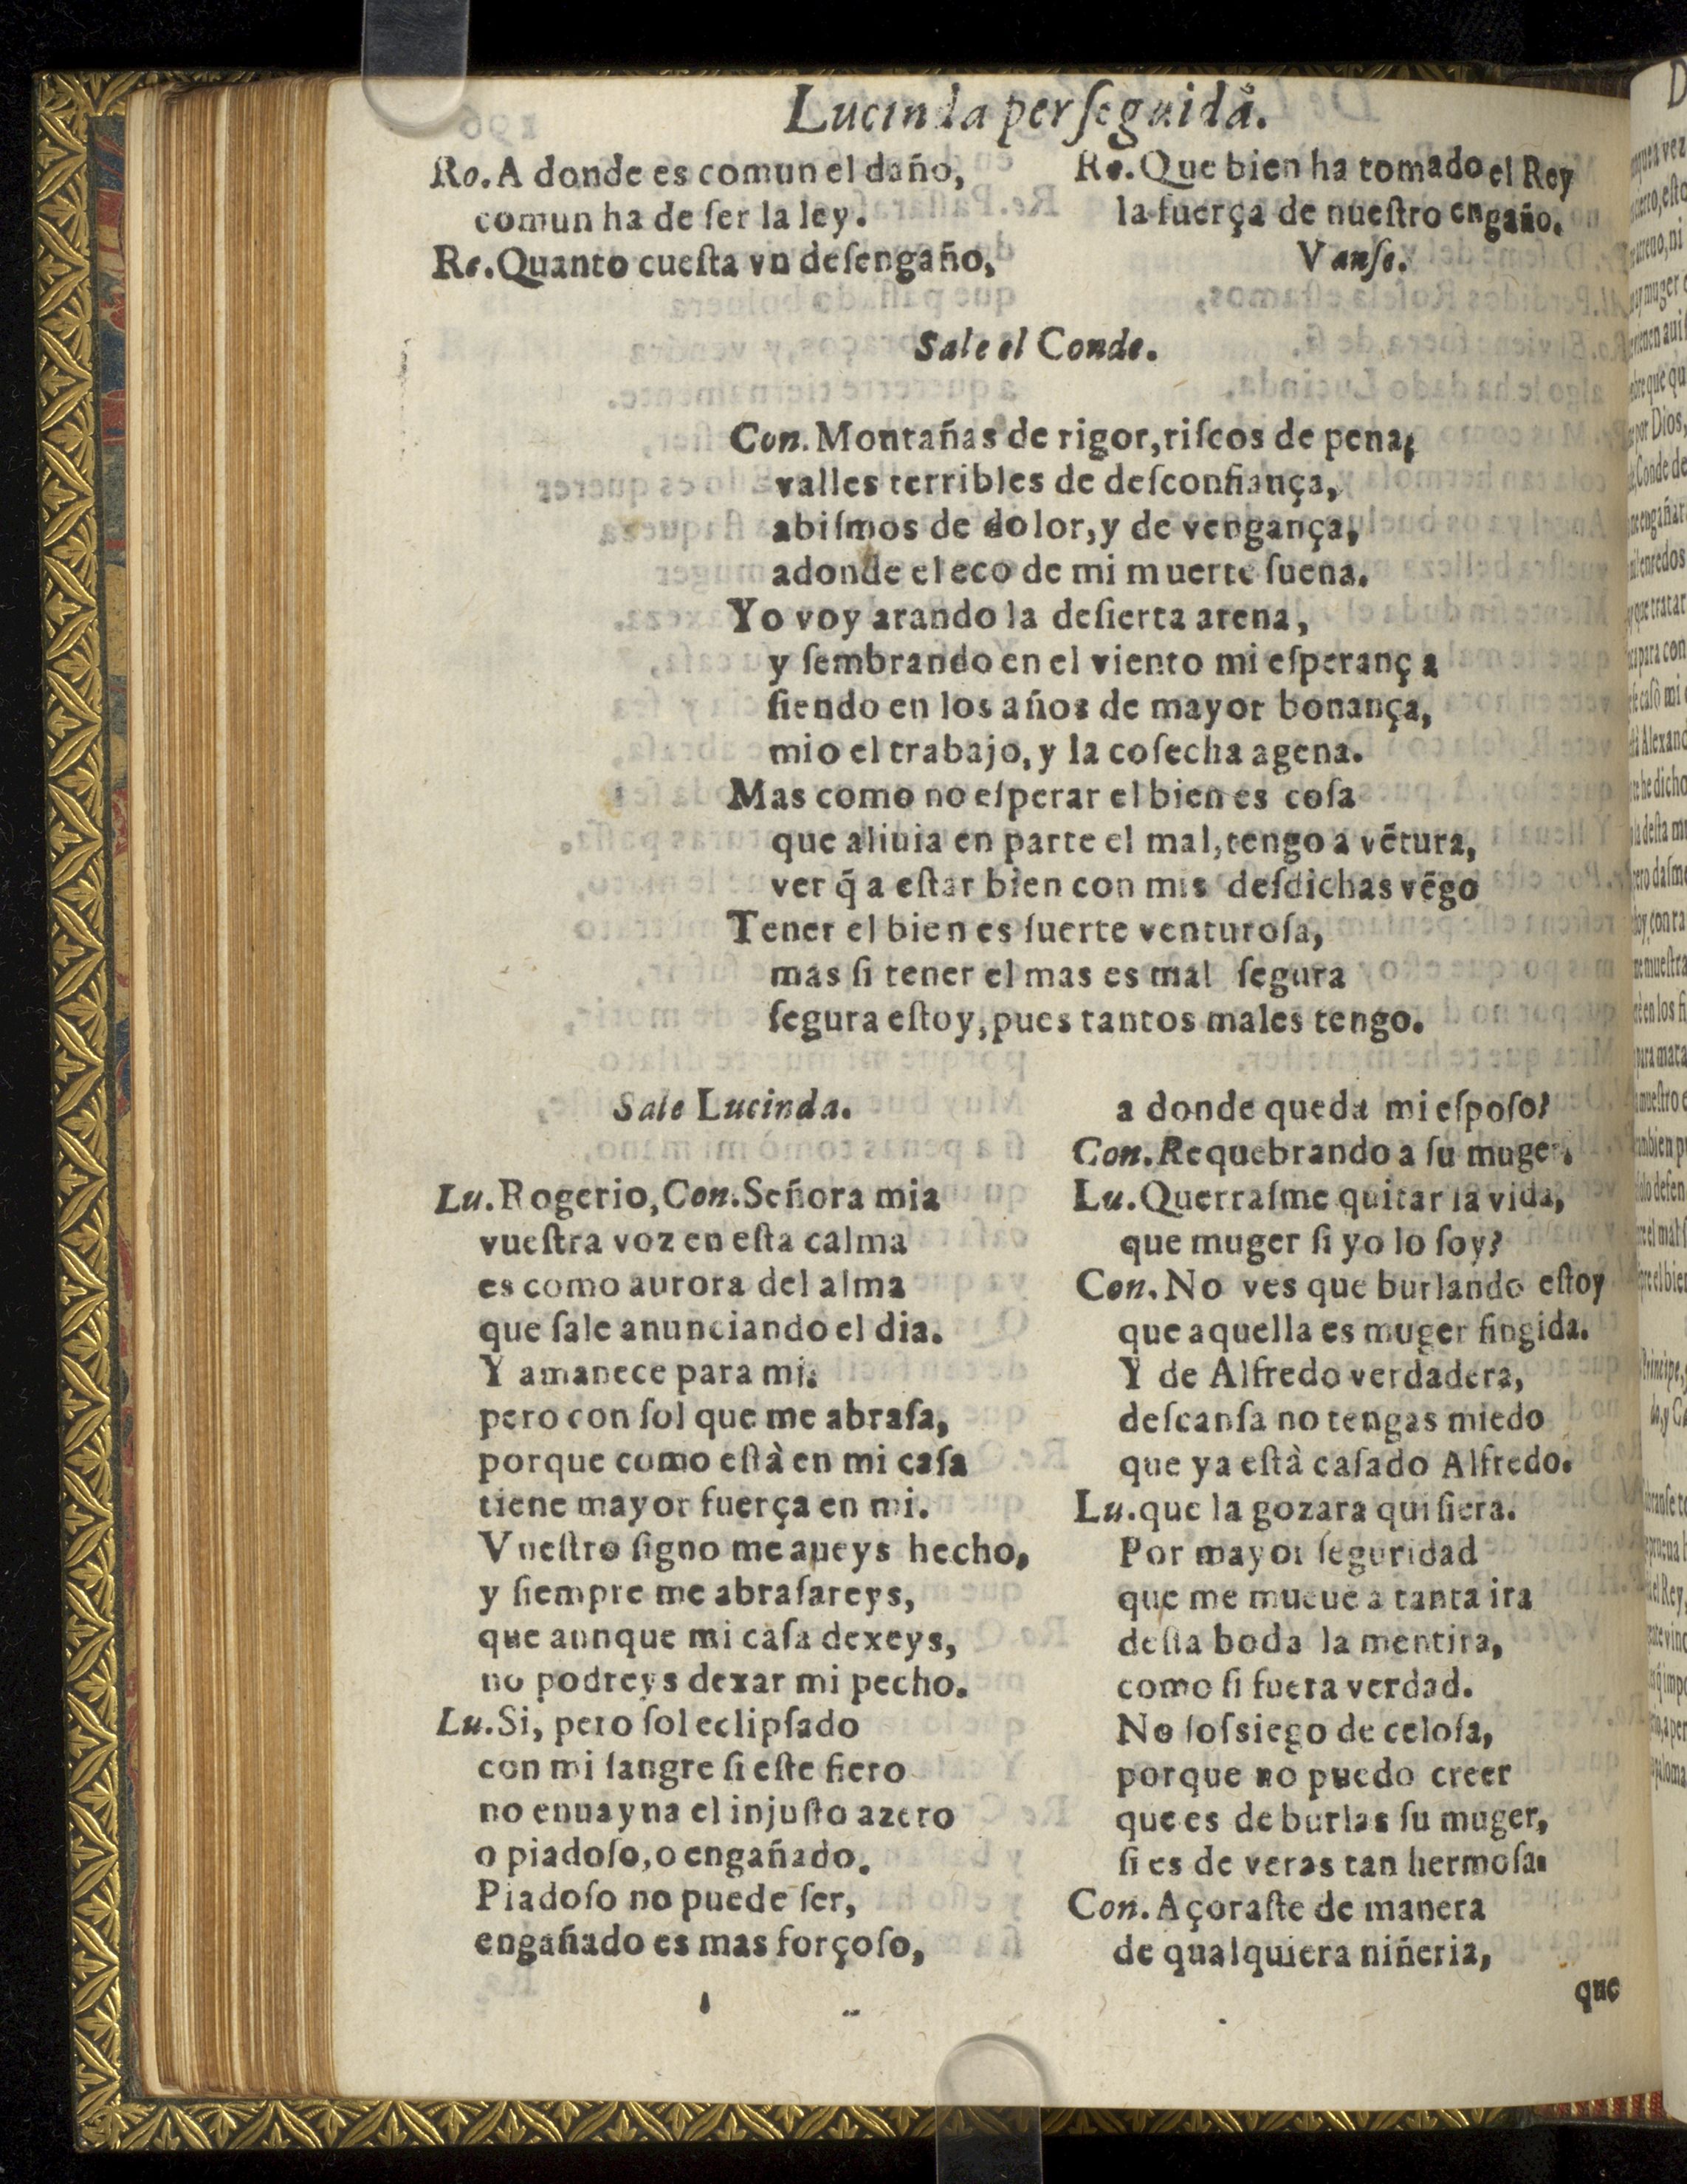 Lucinda perſeguida.
Ro. A donde es comun el daño,
comun ha de ſer la ley.
Re. Quanto cueſta vn deſengaño,
Re. Que bien ha tomado el Rey
la fuerça de nueſtro engaño.
Vanſe.
Sale el Conde.
Con. Montañas de rigor, riſcos de pena,
valles terribles de deſconfiança,
abiſmos de dolor, y de vengança,
adonde el eco de mi muerte ſuena.
Yo voy arando la deſierta arena,
y ſembrando en el viento mi eſperança
ſiendo en los años de mayor bonança,
mio el trabajo, y la coſecha agena.
Mas como no eſperar el bien es coſa
que aliuia en parte el mal, tengo a vẽtura,
ver q̃ a eſtar bien con mis deſdichas vẽgo
Tener el bien es ſuerte venturoſa,
mas ſi tener el mas es mal ſegura
ſegura eſtoy, pues tantos males tengo.
Sale Lucinda.
Lu. Rogerio, Con. Señora mia
vueſtra voz en eſta calma
es como aurora del alma
que ſale anunciando el dia.
Y amanece para mi.
pero con ſol que me abraſa,
porque como eſtà en mi caſa
tiene mayor fuerça en mi.
Vueſtro ſigno me aueys hecho,
y ſiempre me abraſareys,
que aunque mi caſa dexeys,
no podreys dexar mi pecho.
Lu. Si, pero ſol eclipſado
con mi ſangre ſi eſte fiero
no enuayna el injuſto azero
o piadoſo, o engañado.
Piadoſo no puede ſer,
engañado es mas forçoſo,
a donde queda mi eſpoſo?
Con. Requebrando a ſu muger.
Lu. Querraſme quitar la vida,
que muger ſi yo lo ſoy?
Con. No ves que burlando eſtoy
que aquella es muger fingida.
Y de Alfredo verdadera,
deſcanſa no tengas miedo
que ya eſtà caſado Alfredo.
Lu. que la gozara quiſiera.
Por mayor ſeguridad
que me mueue a tanta ira
deſta boda la mentira,
como ſi fuera verdad.
No ſoſsiego de celoſa,
porque no puedo creer
que es de burlas ſu muger,
ſi es de veras tan hermoſa.
Con. Açoraſte de manera
de qualquiera niñeria,
que